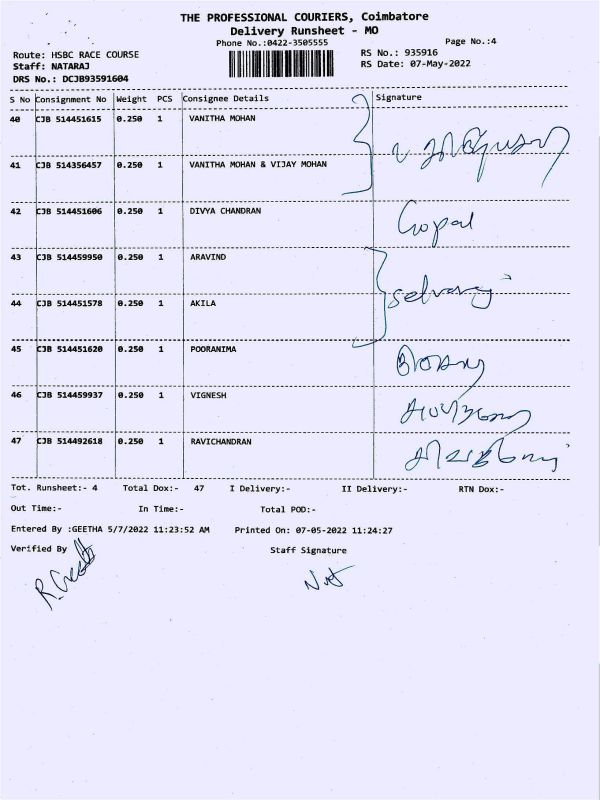 THE PROFESSIONAL COURIERS, Coimbatore
Delivery Runsheet - MO
Phone No.:0422-3505555 Page No.:4
Route: HSBC RACE COURSE RS No.: 935916
Staff: NATARAJ RS Date: 07-May-2022
DRS No.: DCJB93591604
S No Consignment No Weight PCS Consignee Details Signature
40 CJB 514451615 0.250 1 VANITHA MOHAN
41 CJB 514356457 0.250 1 VANITHA MOHAN & VIJAY MOHAN
42 CJB 514451606 0.250 1 DIVYA CHANDRAN Gopal
43 CJB 514459950 1 0.250 1 ARAVIND
Selvaraj
44 CJB 514451578 0.250 1 AKILA
45 CJB 514451620 0.250 1 POORANIMA
46 CJB 514459937 0.250 1 VIGNESH
47 CJB 514492618 0.250 1 RAVICHANDRAN
Tot. Runsheet:- 4 Total Dox:- 47 I Delivery:- II Delivery:- RTN Dox:-
Out Time:- In Time:- Total POD:-
Entered By :GEETHA 5/7/2022 11:23:52 AM Printed On: 07-05-2022 11:24:27
Verified By Staff Signature